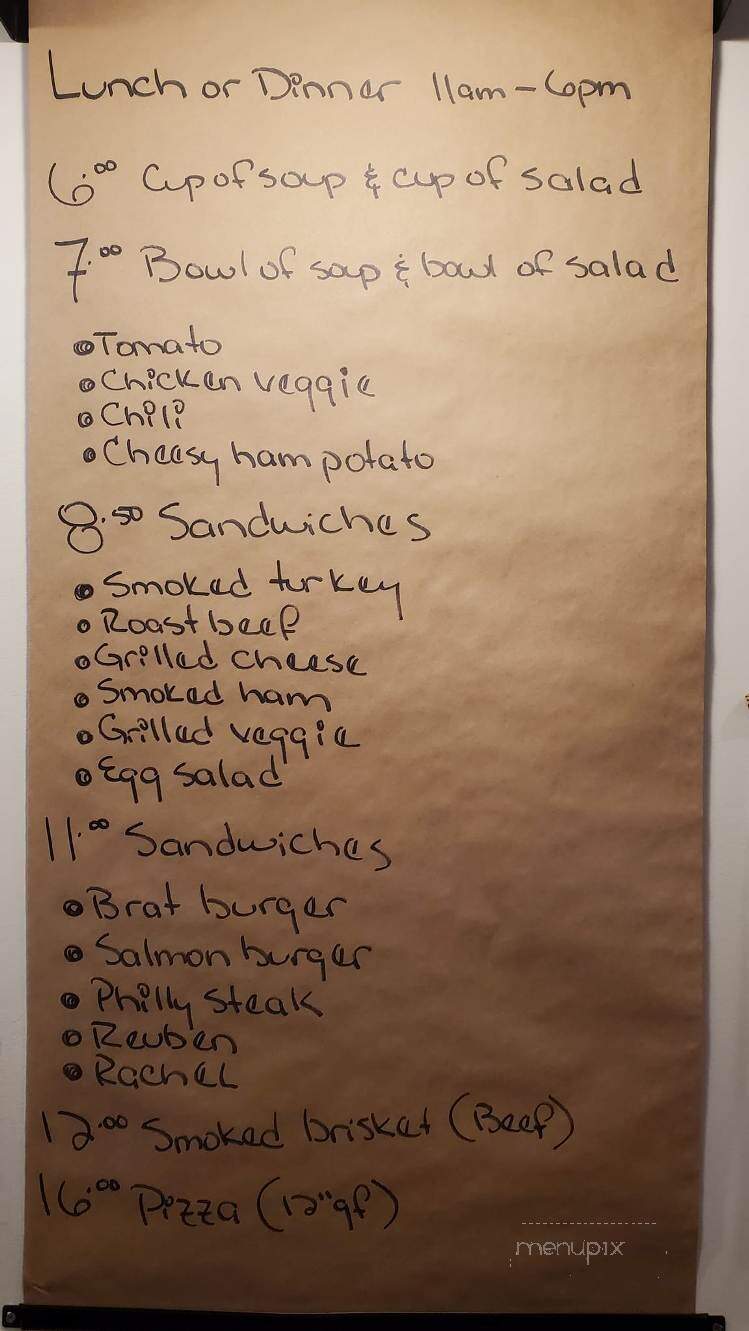 Lunch or Dinner 11am - 6pm
6.00 Cup of soup & cup of salad
7.00 Bowl of soup & bowl of salad
• Tomato
• Chicken veggie
• Chili
• Cheesy ham potato
8.50 Sandwiches
• Smoked turkey
• Roast beef
• Grilled cheese
• Smoked ham
• Grilled veggie
• Egg salad
11.00 Sandwiches
• Brat burger
• Salmon burger
• Philly Steak
• Reuben
• Rachel
12.00 Smoked brisket (Beef)
16.00 Pizza (12" gf)
menupix